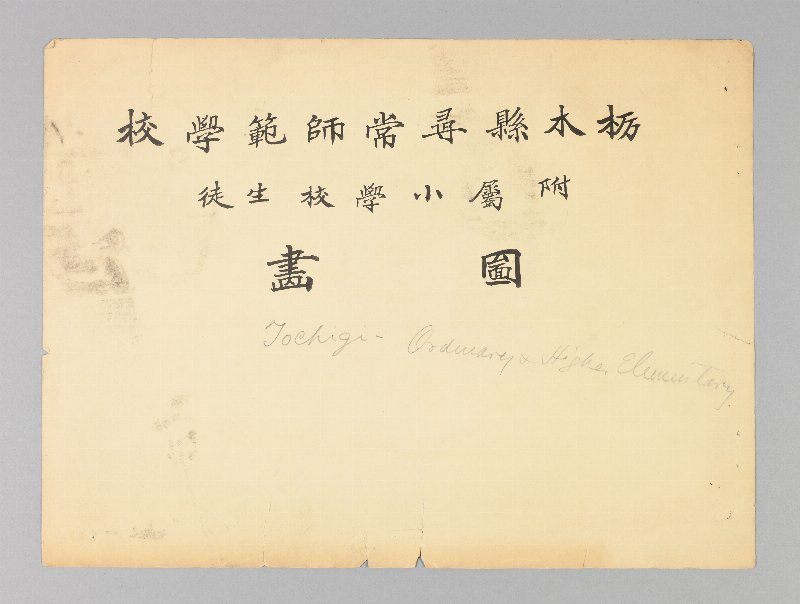 栃木縣尋常師範學校
附屬小學校生徒
圖畵
Tochigi - Ordinary & Higher Elementary.